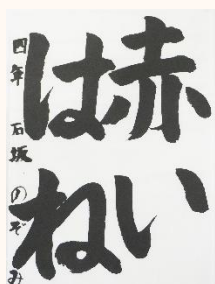 赤い
はね
四年 石坂のぞみ